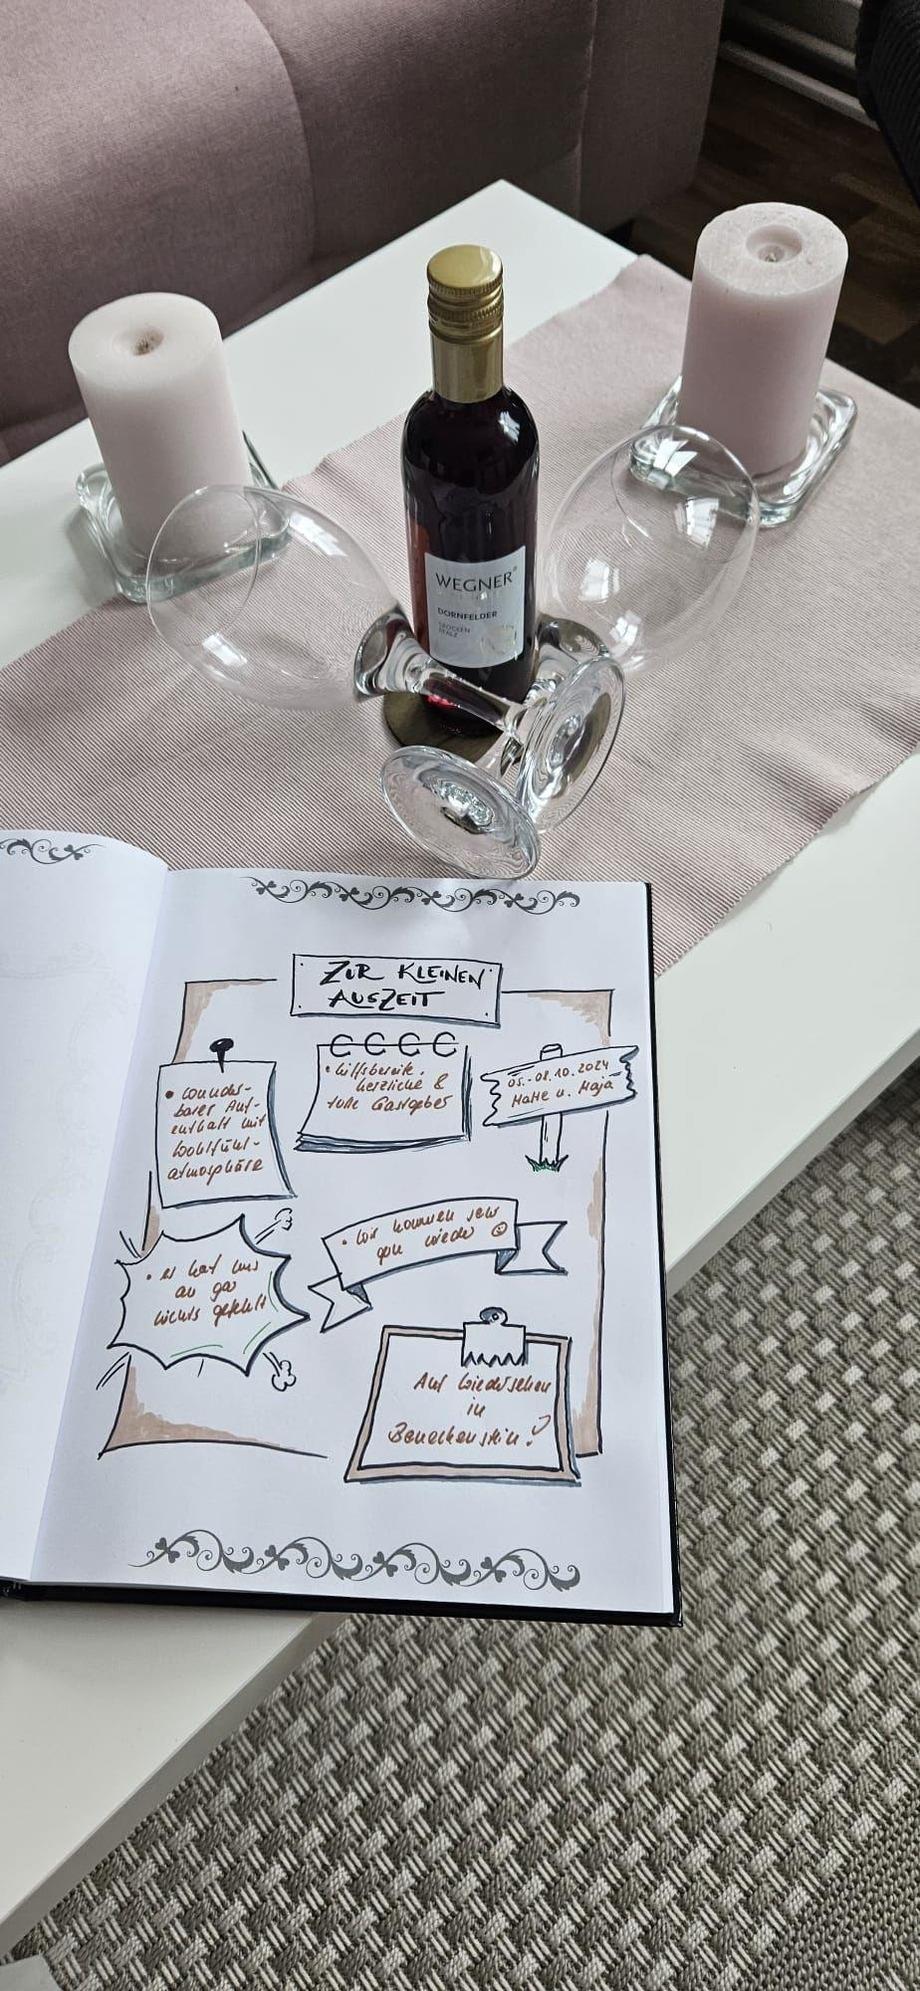 WEGNER
DORNFELDER
TROCKEN
PFALZ
ZUR KLEINEN
AUSZEIT
• wunder-
barer Auf-
enthalt mit
Wohlfühl-
atmosphäre
• hilfsbereite,
herzliche &
tolle Gastgeber
05.-08.10.2024
Malte u. Maja
• es hat uns
an gar
nichts gefehlt
• Wir kommen sehr
gern wieder ☺
Auf Wiedersehen
in
Benneckenstein!